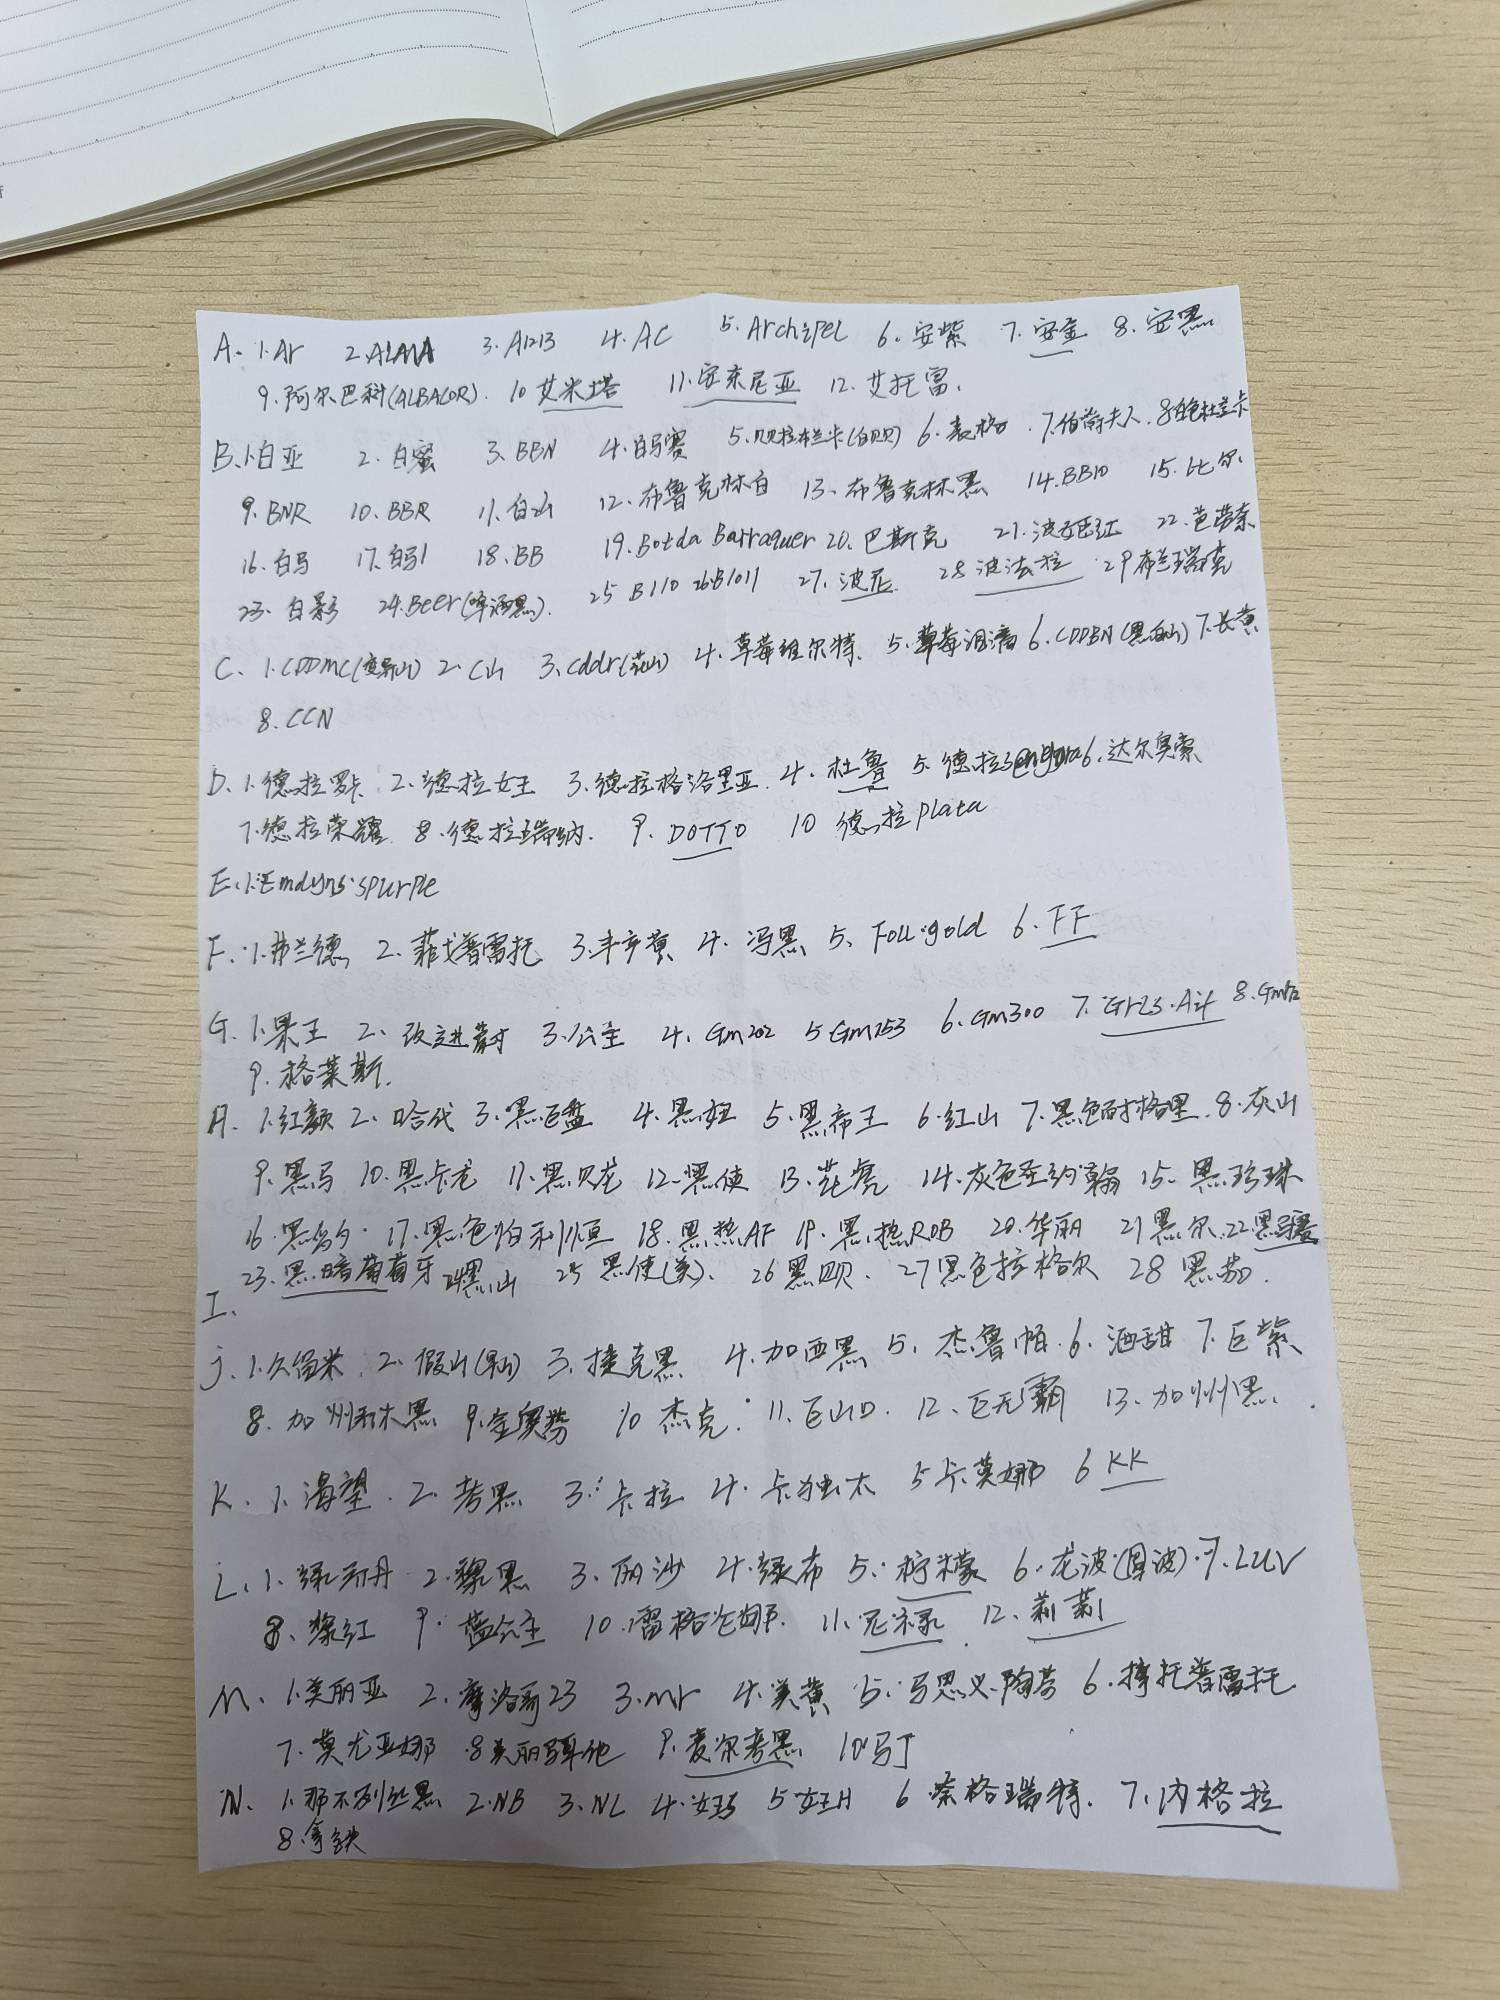 A. 1.Ar 2.ALMA 3.A1213 4.AC 5.Archipel 6.安紫 7.安金 8.安黑
9.阿尔巴科(ALBACOR). 10 艾米塔 11.安东尼亚 12.艾托富.
B.1.白亚 2.白蜜 3.BBN 4.白马赛 5.贝拉布兰卡(白贝) 6.表格 7.伯爵夫人 8.白色杜兰卡
9.BNR 10.BBR 11.白山 12.布鲁克林白 13.布鲁克林黑 14.BB10 15.比尔
16.白马 17.白马1 18.BB 19.Botda Barraquer 20.巴斯克 21.波姬红 22.芭蕾奈
23.白影 24.Beer(啤酒黑). 25 B110 26.B1011 27.波尼 28 波法拉 29布兰瑞克
C. 1.CDDMC(变异山) 2.C山 3.Cddr(花山) 4.草莓维尔特. 5.草莓泪滴 6.CDDBN(黑白山) 7.长黄
8.CCN
D.1.德拉罗卡 2.德拉女王 3.德拉格洛里亚 4.杜鲁 5.德拉Senyora 6.达尔奥索
7.德拉荣耀 8.德拉瑞纳. 9.DOTTO 10 德拉Plata
E.1.Emdyns·spurple
F.1.弗兰德 2.菲戈普雷托 3.丰产黄 4.冯黑 5.Foll·gold 6.FF
G.1.果王 2.改进蔚 3.公主 4.Gm202 5.Gm253 6.Gm300 7.Gris·Aif 8.Gm12
9.格莱斯.
H 1.红颜 2.哈代 3.黑巨盘 4.黑妞 5.黑帝王 6.红山 7.黑色耐格里 8.灰山
9.黑马 10.黑卡龙 11.黑贝龙 12.黑使 13.花虎 14.灰色圣约翰 15.黑珍珠
16.黑 17.黑色伯利恒 18.黑热AF 19.黑热ROB 20.华丽 21黑尔 22.黑
23.黑暗葡萄牙 24黑山 25黑使(美). 26黑贝. 27黑色拉格尔 28黑茄.
I.
J.1.久留米 2.假山(果山) 3.捷克黑 4.加西黑 5.杰鲁帕 6.酒甜 7.巨紫
8.加州积木黑 9.金奥劳 10 杰克. 11.巨山D. 12.巨无霸 13.加州黑.
K.1.渴望. 2.考黑 3.卡拉 4.卡独太 5卡莫娜 6 KK
L.1.绿乔丹 2.黑 3.丽沙 4.绿布 5.柠檬 6.龙波(圆波) 7.LUV
8.紫红 9.蓝公主 10.雷格伦娜. 11.尼禄 12.莉莉
M.1.美丽亚 2.摩洛哥23 3.mr 4.美黄 5.马恩义陶芬 6.摔托普雷托
7.莫尤亚娜 8美丽 9.麦尔考黑 10马丁
N.1.那不列丝黑 2.NB 3.NL 4.女王 5女王H 6.奈格瑞特. 7.内格拉
8.拿铁